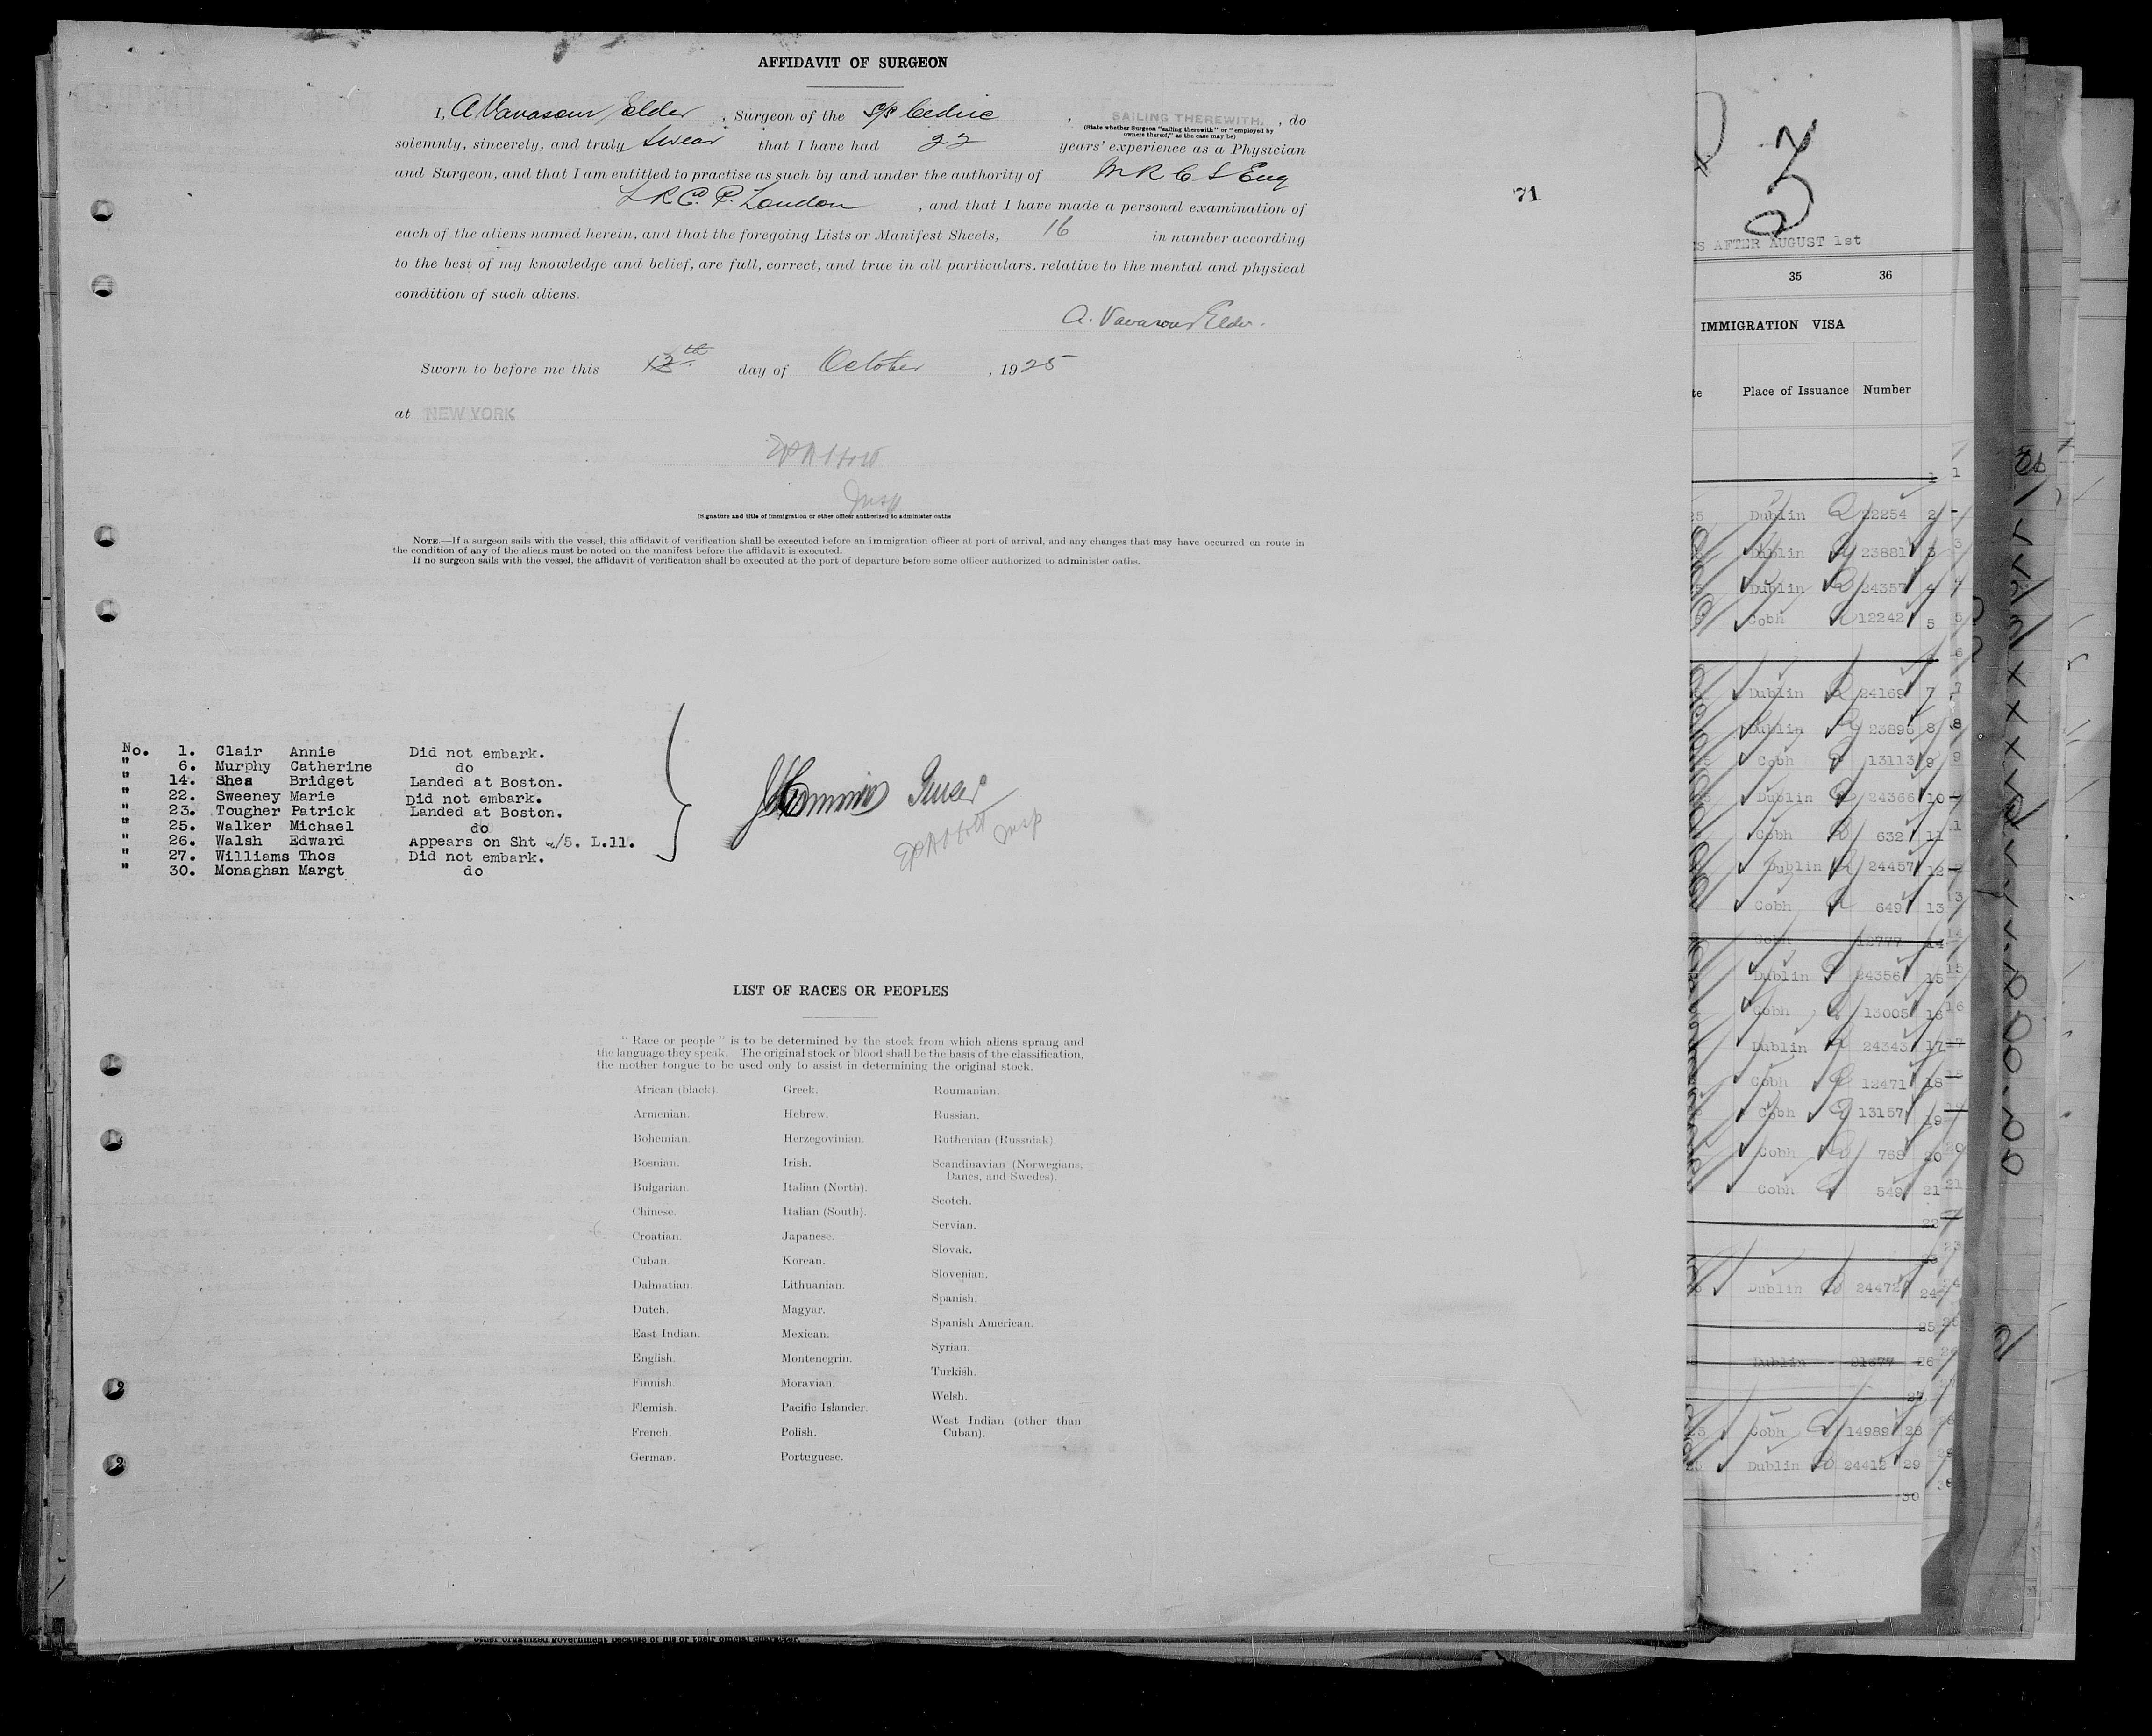 AFFIDAVIT OF SURGEON
I, A Vavasour Elder, Surgeon of the S/S Cedric, SAILING THEREWITH, do
(State whether Surgeon "sailing therewith" or "employed by
owners thereof," as the case may be)
solemnly, sincerely, and truly swear that I have had 22 years' experience as a Physician
and Surgeon, and that I am entitled to practise as such by and under the authority of M R C S Eng
L R C. P. London, and that I have made a personal examination of
71
each of the aliens named herein, and that the foregoing Lists or Manifest Sheets, 16 in number according
to the best of my knowledge and belief, are full, correct, and true in all particulars, relative to the mental and physical
condition of such aliens.
A. Vavasour Elder.
Sworn to before me this 12th day of October, 1925
at NEW YORK
EPAbbott
Insp
(Signature and title of immigration or other officer authorized to administer oaths
NOTE.—If a surgeon sails with the vessel, this affidavit of verification shall be executed before an immigration officer at port of arrival, and any changes that may have occurred en route in
the condition of any of the aliens must be noted on the manifest before the affidavit is executed.
If no surgeon sails with the vessel, the affidavit of verification shall be executed at the port of departure before some officer authorized to administer oaths.
No. 1. Clair Annie Did not embark.
" 6. Murphy Catherine do
" 14. Shea Bridget Landed at Boston.
" 22. Sweeney Marie Did not embark.
" 23. Tougher Patrick Landed at Boston.
" 25. Walker Michael do
" 26. Walsh Edward Appears on Sht /5. L.11.
" 27. Williams Thos Did not embark.
" 30. Monaghan Margt do
Purser
EPAbbott Insp
LIST OF RACES OR PEOPLES
"Race or people" is to be determined by the stock from which aliens sprang and
the language they speak. The original stock or blood shall be the basis of the classification,
the mother tongue to be used only to assist in determining the original stock.
African (black).
Armenian.
Bohemian.
Bosnian.
Bulgarian.
Chinese.
Croatian.
Cuban.
Dalmatian.
Dutch.
East Indian.
English.
Finnish.
Flemish.
French.
German.
Greek.
Hebrew.
Herzegovinian.
Irish.
Italian (North).
Italian (South).
Japanese.
Korean.
Lithuanian.
Magyar.
Mexican.
Montenegrin.
Moravian.
Pacific Islander.
Polish.
Portuguese.
Roumanian.
Russian.
Ruthenian (Russniak).
Scandinavian (Norwegians,
Danes, and Swedes).
Scotch.
Servian.
Slovak.
Slovenian.
Spanish.
Spanish American.
Syrian.
Turkish.
Welsh.
West Indian (other than
Cuban).
3
S AFTER AUGUST 1st
35 36
IMMIGRATION VISA
te Place of Issuance Number
1
25 Dublin 22254 2
Dublin 23881 3
Dublin 24357 4
Cobh 12242 5
6
Dublin 24169 7
Dublin 23896 8
Cobh 13113 9
Dublin 24366 10
Cobh 632 11
Dublin 24457 12
Cobh 649 13
Cobh 12777 14
Dublin 24356 15
Cobh 13005 16
Dublin 24343 17
Cobh 12471 18
Cobh 13157 19
Cobh 768 20
Cobh 549 21
22
23
Dublin 24472 24
25
Dublin 26
27
Cobh 14989 28
Dublin 24412 29
30
other organized government because of his or their official character.